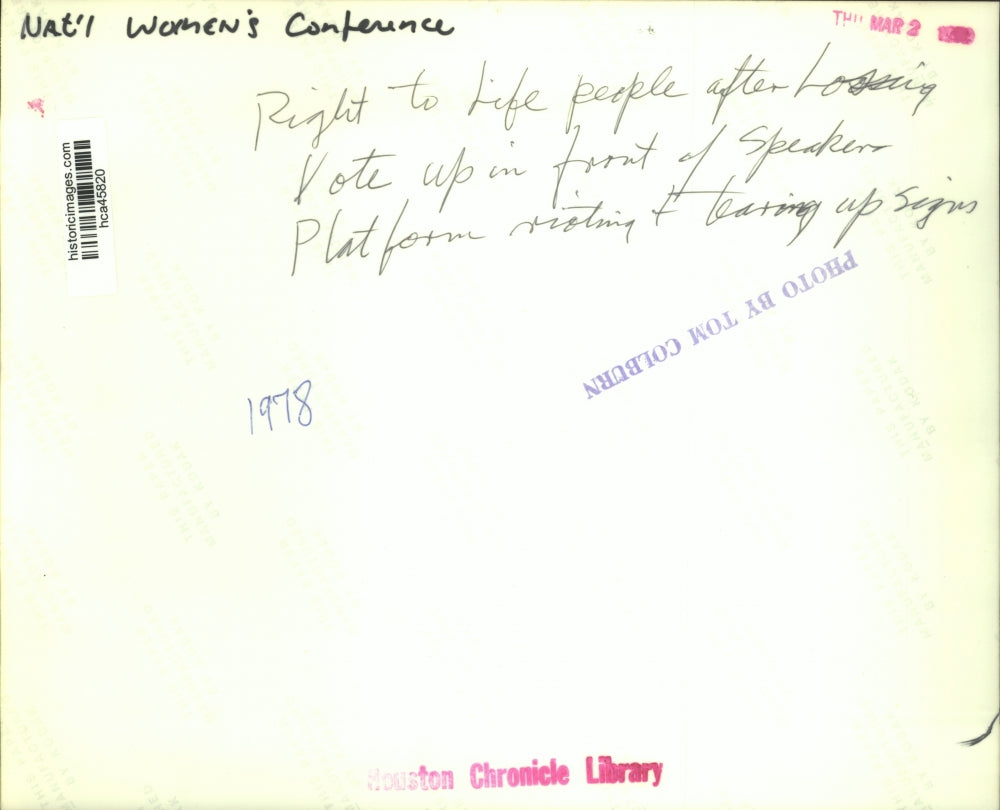 NAT'l WOMEN'S Conference
THU MAR 2
Right to Life people after Lossing
Vote up in front of Speakers
Platform rioting + tearing up signs
historicimages.com
hca45820
PHOTO BY TOM COLBURN
1978
Houston Chronicle Library
THIS PAPER
MANUFACTURED
BY KODAK